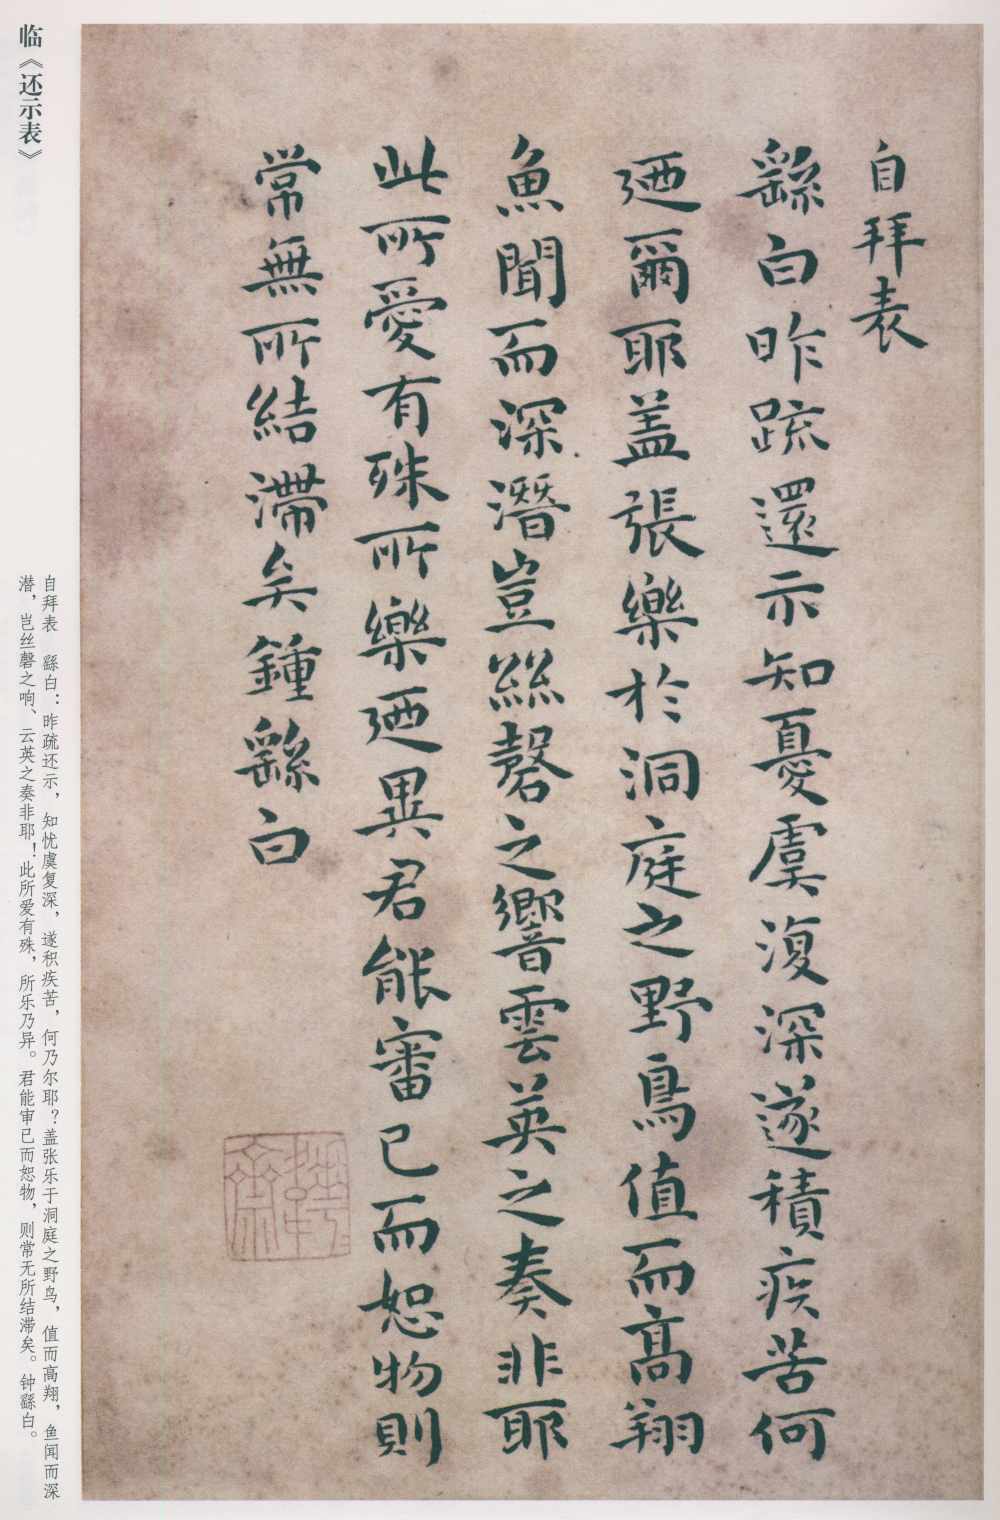 自拜表
繇白昨疏還示知憂虞復深遂積疾苦何
廼爾耶盖張樂於洞庭之野鳥值而高翔
魚聞而深潛豈絲磬之響雲英之奏非耶
此所愛有殊所樂廼異君能審己而恕物則
常無所結滯矣鍾繇白
临《还示表》
自拜表 繇白：昨疏还示，知忧虞复深，遂积疾苦，何乃尔耶？盖张乐于洞庭之野鸟，值而高翔，鱼闻而深
潜，岂丝磬之响、云英之奏非耶！此所爱有殊，所乐乃异。君能审已而恕物，则常无所结滞矣。钟繇白。